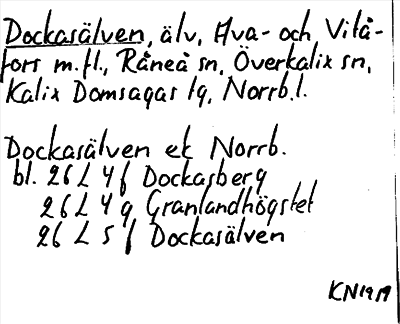 Dockasälven, älv, Hva- och Vitå-
fors m.fl., Råneå sn, Överkalix sn,
Kalix Domsagas lg, Norrb.l.
Dockasälven ek Norrb.
bl. 26 L 4 f Dockasberg
26 L 4 g Granlandhögstet
26 L 5 f Dockasälven
KN1919